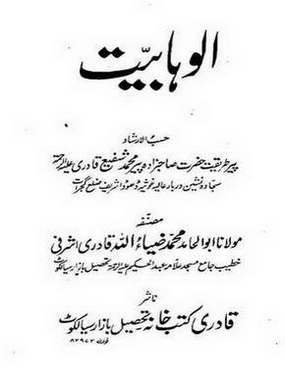 الوہابیت
حسب الارشاد
پیر طریقت حضرت صاحبزادہ پیر محمد شفیع قادری علیہ الرحمۃ
سجادہ نشین دربار عالیہ غوثیہ ڈھوڈا شریف ضلع گجرات
مصنفہ
مولانا ابوالحامد محمد ضیاء اللہ قادری اشرفی
خطیب جامع مسجد علامہ عبدالحکیم علیہ الرحمۃ تحصیل بازار سیالکوٹ
ناشر
قادری کتب خانہ تحصیل بازار سیالکوٹ